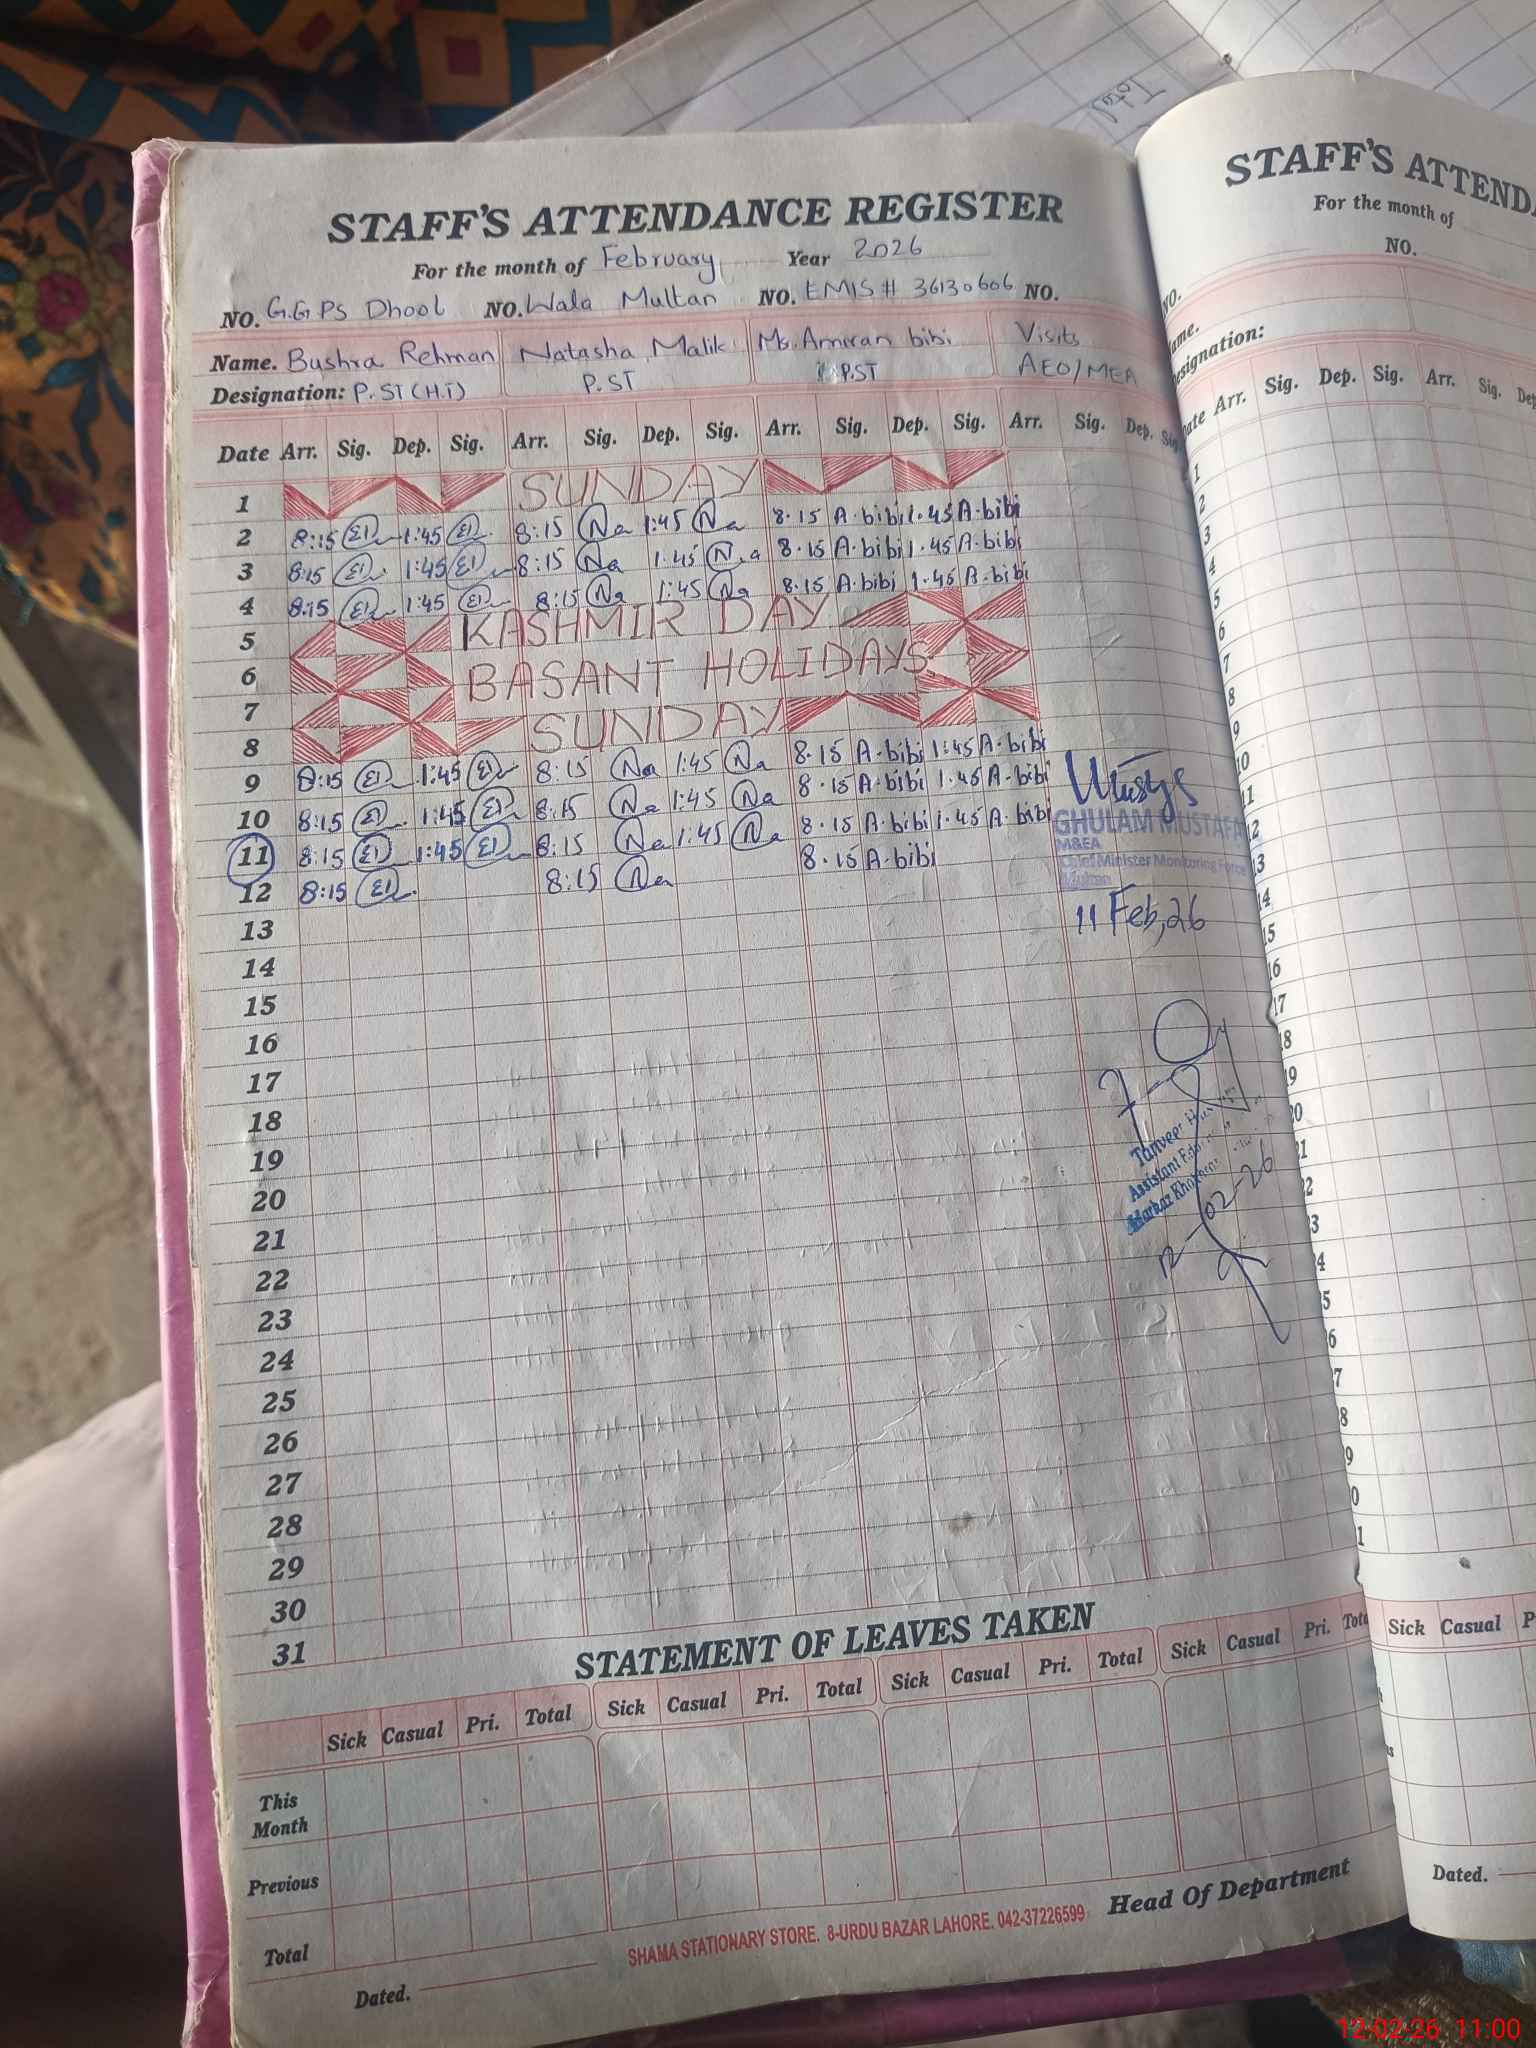 Total
STAFF'S ATTENDANCE REGISTER
For the month of February Year 2026
NO. G.G PS Dhool NO. Wala Multan NO. EMIS # 36130606 NO.
Name. Bushra Rehman Natasha Malik Ms. Amiran bibi Visits
Designation: P.ST (H.T) P.ST P.ST AEO/MEA
Date Arr. Sig. Dep. Sig. Arr. Sig. Dep. Sig. Arr. Sig. Dep. Sig. Arr. Sig. Dep. Sig
1 SUNDAY
2 8:15 1:45 8:15 Na 1:45 Na 8.15 A.bibi 1.45 A.bibi
3 8:15 1:45 8:15 Na 1:45 Na 8.15 A.bibi 1.45 A.bibi
4 8:15 1:45 8:15 Na 1:45 Na 8.15 A.bibi 1.45 A.bibi
5 KASHMIR DAY
6 BASANT HOLIDAYS
7
8 SUNDAY
9 8:15 1:45 8:15 Na 1:45 Na 8.15 A.bibi 1:45 A.bibi
10 8:15 1:45 8:15 Na 1:45 Na 8.15 A.bibi 1.45 A.bibi
11 8:15 1:45 8:15 Na 1:45 Na 8.15 A.bibi 1.45 A.bibi
12 8:15 8:15 Na 8.15 A.bibi
GHULAM MUSTAFA
M&EA
Chief Minister Monitoring Force
Multan
11 Feb, 26
13
14
15
16
17
18
19
20
21
22
23
24
25
26
27
28
29
30
31
Tanveer
Assistant
Markaz
12-02-26
STATEMENT OF LEAVES TAKEN
Sick Casual Pri. Total Sick Casual Pri. Total Sick Casual Pri. Total Sick Casual Pri. Tota
This
Month
Previous
Total
Dated.
SHAMA STATIONARY STORE. 8-URDU BAZAR LAHORE. 042-37226599
Head Of Department
STAFF'S ATTEND
For the month of
NO. NO.
ame.
esignation:
Date Arr. Sig. Dep. Sig. Arr. Sig. Dep
1
2
3
4
5
6
7
8
9
10
11
12
13
14
15
16
17
18
19
20
21
22
23
24
25
26
27
28
29
30
31
Sick Casual P
Dated.
12-02-26 11:00